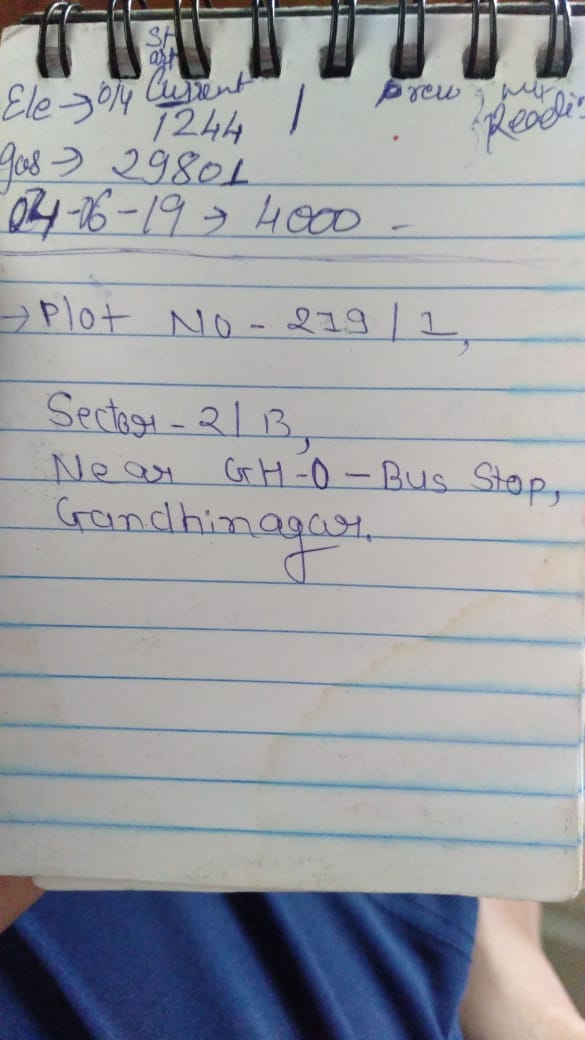 Start
Ele → 0/4 Current / prev mtr
1244 Readi
Gas → 29801
04-06-19 → 4000 -
→ Plot No - 219/1,
Sector - 2/B,
Near GH-0 - Bus Stop,
Gandhinagar.